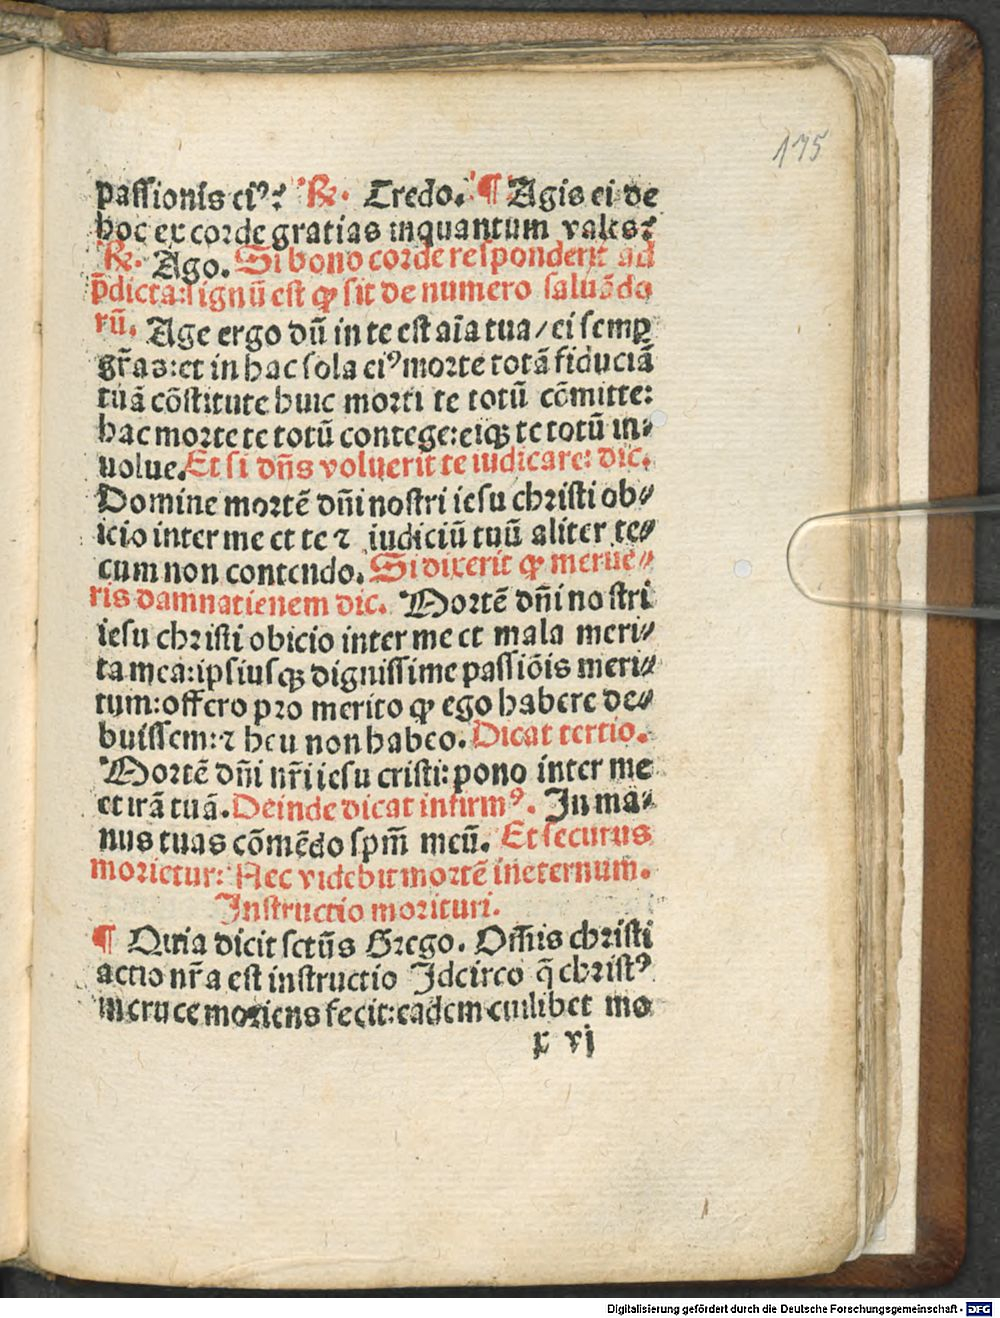 175
passionis eiꝰ? ℞. Credo. ¶ Agis ei de
hoc ex corde gratias inquantum vales?
℞. Ago. Si bono corde responderit ad
p̄dicta: signū est ꝙ sit de numero saluādo
rū. Age ergo dū in te est aīa tua/ ei semꝑ
gr̄as: et in hac sola eiꝰ morte totā fiduciā
tuā cōstitute huic morti te totū cōmitte:
hac morte te totū contege: eiqꝫ te totū in⸗
uolue. Et si dn̄s voluerit te iudicare: dic.
Domine mortē dn̄i nostri iesu christi ob⸗
icio inter me et te ⁊ iudiciū tuū aliter te⸗
cum non contendo. Si dixerit ꝙ merue⸗
ris damnatienem dic. Mortē dn̄i nostri
iesu christi obicio inter me et mala meri⸗
ta mea: ipsiusqꝫ dignissime passiōis meri⸗
tum: offero pro merito ꝙ ego habere de⸗
buissem: ⁊ heu non habeo. Dicat tertio.
Mortē dn̄i nr̄i iesu cristi: pono inter me
et irā tuā. Deinde dicat infirmꝰ. In ma⸗
nus tuas cōmēdo spm̄ meū. Et securus
morietur: Nec videbit mortē ineternum.
Instructio morituri.
¶ Quia dicit sctūs Grego. Om̄is christi
actio nr̄a est instructio Idcirco q̄ christꝰ
in cruce moriens fecit: eadem cuilibet mo
x vj
Digitalisierung gefördert durch die Deutsche Forschungsgemeinschaft - DFG